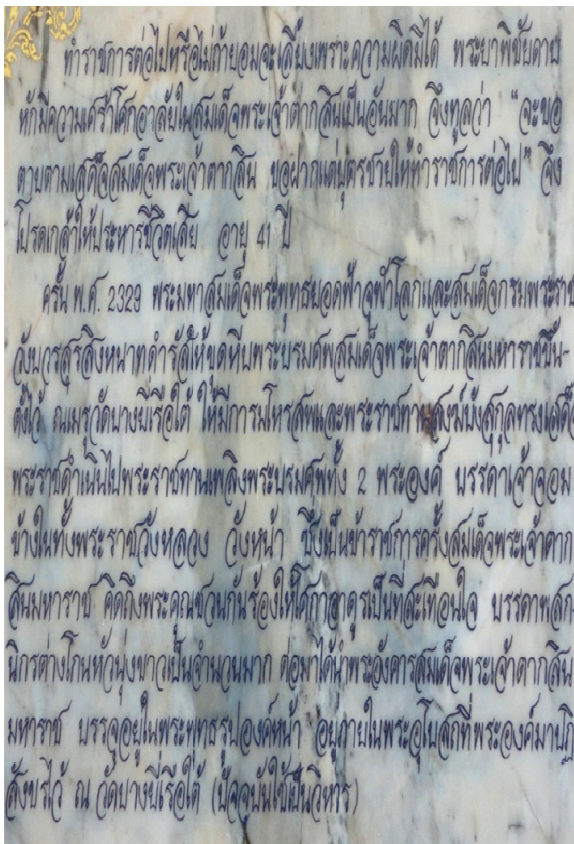 ทำราชการต่อไปหรือไม่ถ้ายอมจะเลี้ยงเพราะความผิดมิได้ พระยาพิชัยดาบ
หักมีความเศร้าโศกอาลัยในสมเด็จพระเจ้าตากสินเป็นอันมาก จึงทูลว่า "จะขอ
ตายตามเสด็จสมเด็จพระเจ้าตากสิน ขอฝากแต่บุตรชายให้ทำราชการต่อไป" จึง
โปรดเกล้าให้ประหารชีวิตเสีย อายุ 41 ปี
ครั้น พ.ศ. 2329 พระมหาสมเด็จพระพุทธยอดฟ้าจุฬาโลกและสมเด็จกรมพระราช
วังบวรสุรสิงหนาทดำรัสให้ขุดหีบพระบรมศพสมเด็จพระเจ้าตากสินมหาราชขึ้น-
ตั้งไว้ ณเมรุวัดบางยี่เรือใต้ ให้มีการมโหรสพและพระราชทานสงฆ์บังสุกุลทรงเสด็จ
พระราชดำเนินไปพระราชทานเพลิงพระบรมศพทั้ง 2 พระองค์ บรรดาเจ้าจอม
ข้างในทั้งพระราชวังหลวง วังหน้า ซึ่งเป็นข้าราชการครั้งสมเด็จพระเจ้าตาก
สินมหาราช คิดถึงพระคุณชวนกันร้องไห้โศกาอาดูรเป็นที่สะเทือนใจ บรรดาพสก
นิกรต่างโกนหัวนุ่งขาวเป็นจำนวนมาก ต่อมาได้นำพระอังคารสมเด็จพระเจ้าตากสิน
มหาราช บรรจุอยู่ในพระพุทธรูปองค์หน้า อยู่ภายในพระอุโบสถที่พระองค์มาปฏิ
สังขรไว้ ณ วัดบางยี่เรือใต้ (ปัจจุบันใช้เป็นวิหาร)